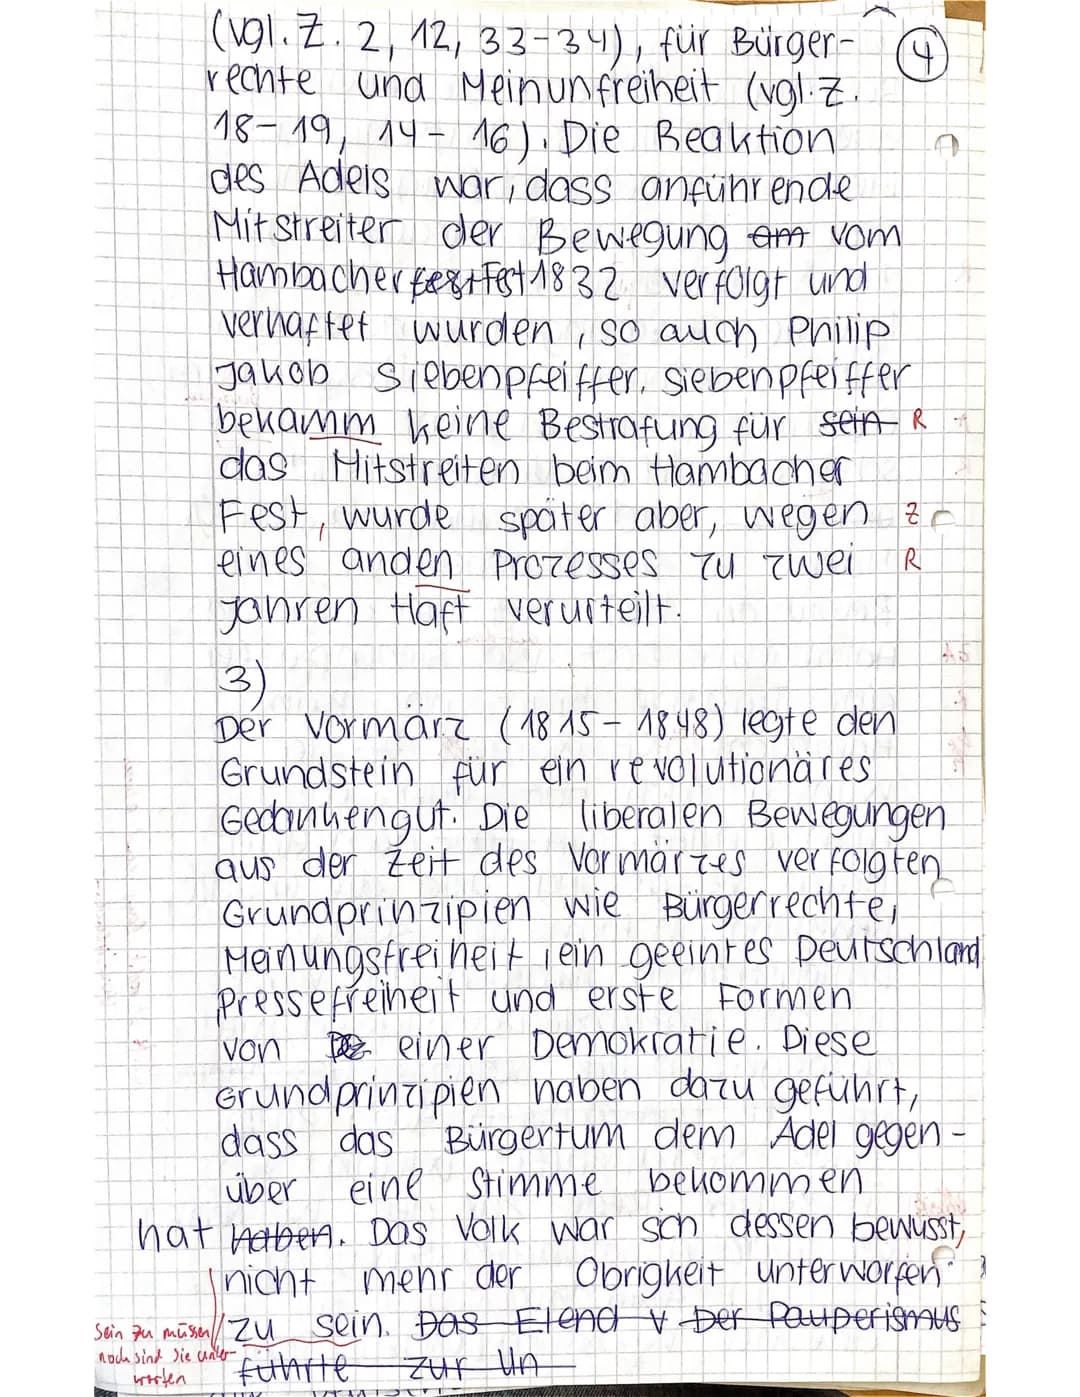 (vgl. Z. 2, 12, 33-34), für Bürger- 4
rechte und Meinunfreiheit (vgl. Z.
18-19, 14-16). Die Reaktion
des Adels war, dass anführende
Mitstreiter der Bewegung am vom
Hambacher fest Fest 1832 verfolgt und
verhaftet wurden, so auch Philip
Jakob Siebenpfeiffer. Siebenpfeiffer
bekamm keine Bestrafung für sein R
das Mitstreiten beim Hambacher
Fest, wurde später aber, wegen Z
eines anden Prozesses zu zwei R
Jahren Haft verurteilt.
3)
Der Vormärz (1815-1848) legte den
Grundstein für ein revolutionäres
Gedankengut. Die liberalen Bewegungen
aus der Zeit des Vormärzes verfolgten
Grundprinzipien wie Bürgerrechte,
Meinungsfreiheit, ein geeintes Deutschland
Pressefreiheit und erste Formen
von einer Demokratie. Diese
Grundprinzipien haben dazu geführt,
dass das Bürgertum dem Adel gegen-
über eine Stimme bekommen
hat haben. Das Volk war sich dessen bewusst,
nicht mehr der Obrigkeit unterworfen
zu sein. Das Elend v Der Pauperismus
sein zu müssen
noch sind sie unter-
worfen
führte zur Un